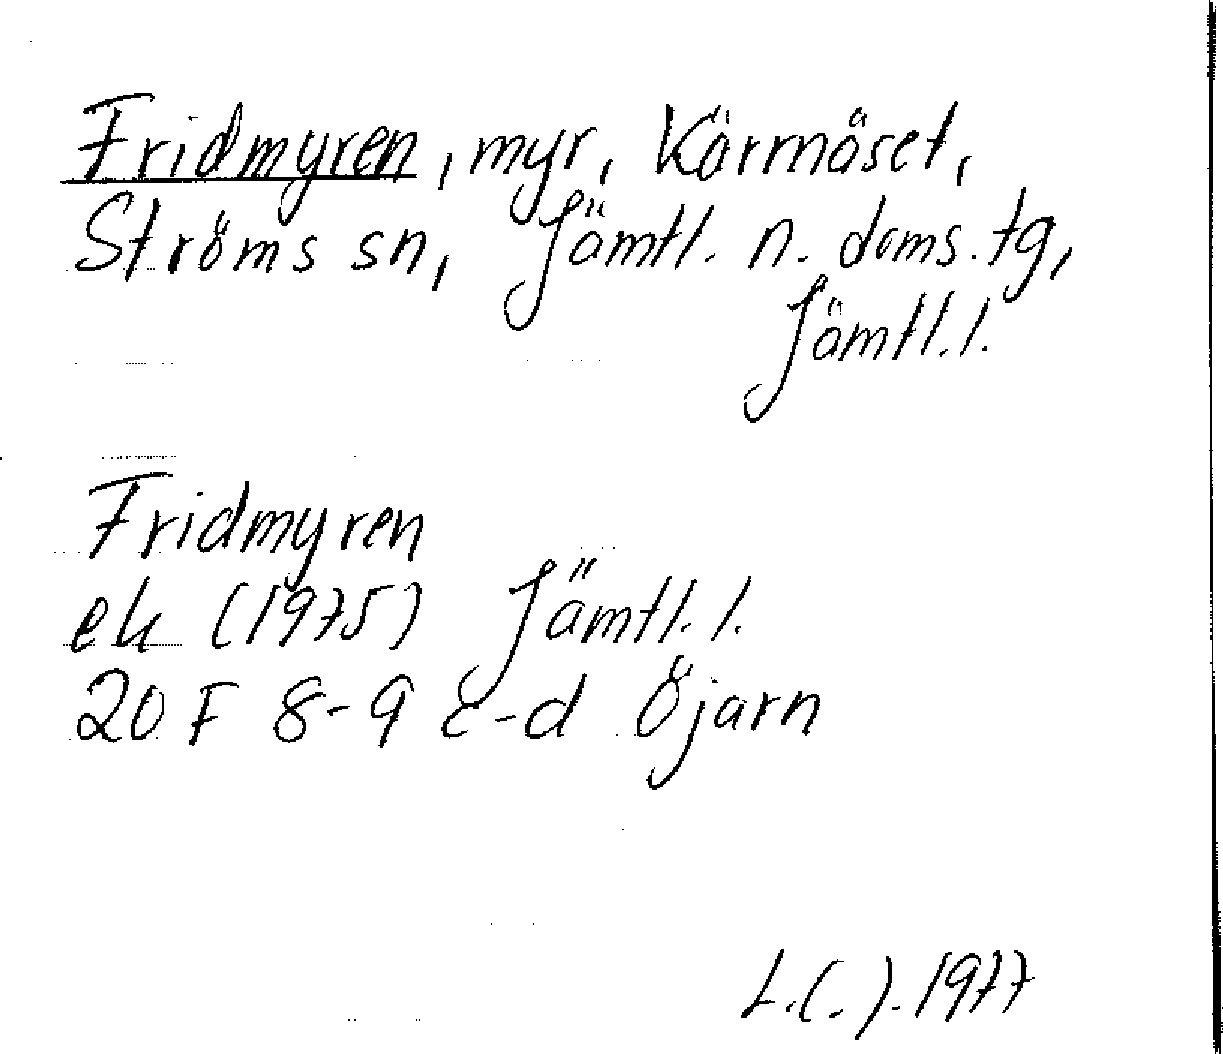 Fridmyren, myr, Körmöset,
Ströms sn, Jämtl. n. doms.tg,
Jämtl.l.
Fridmyren
ek (1975) Jämtl.l.
20 F 8-9 c-d Öjarn
L.(.).1977